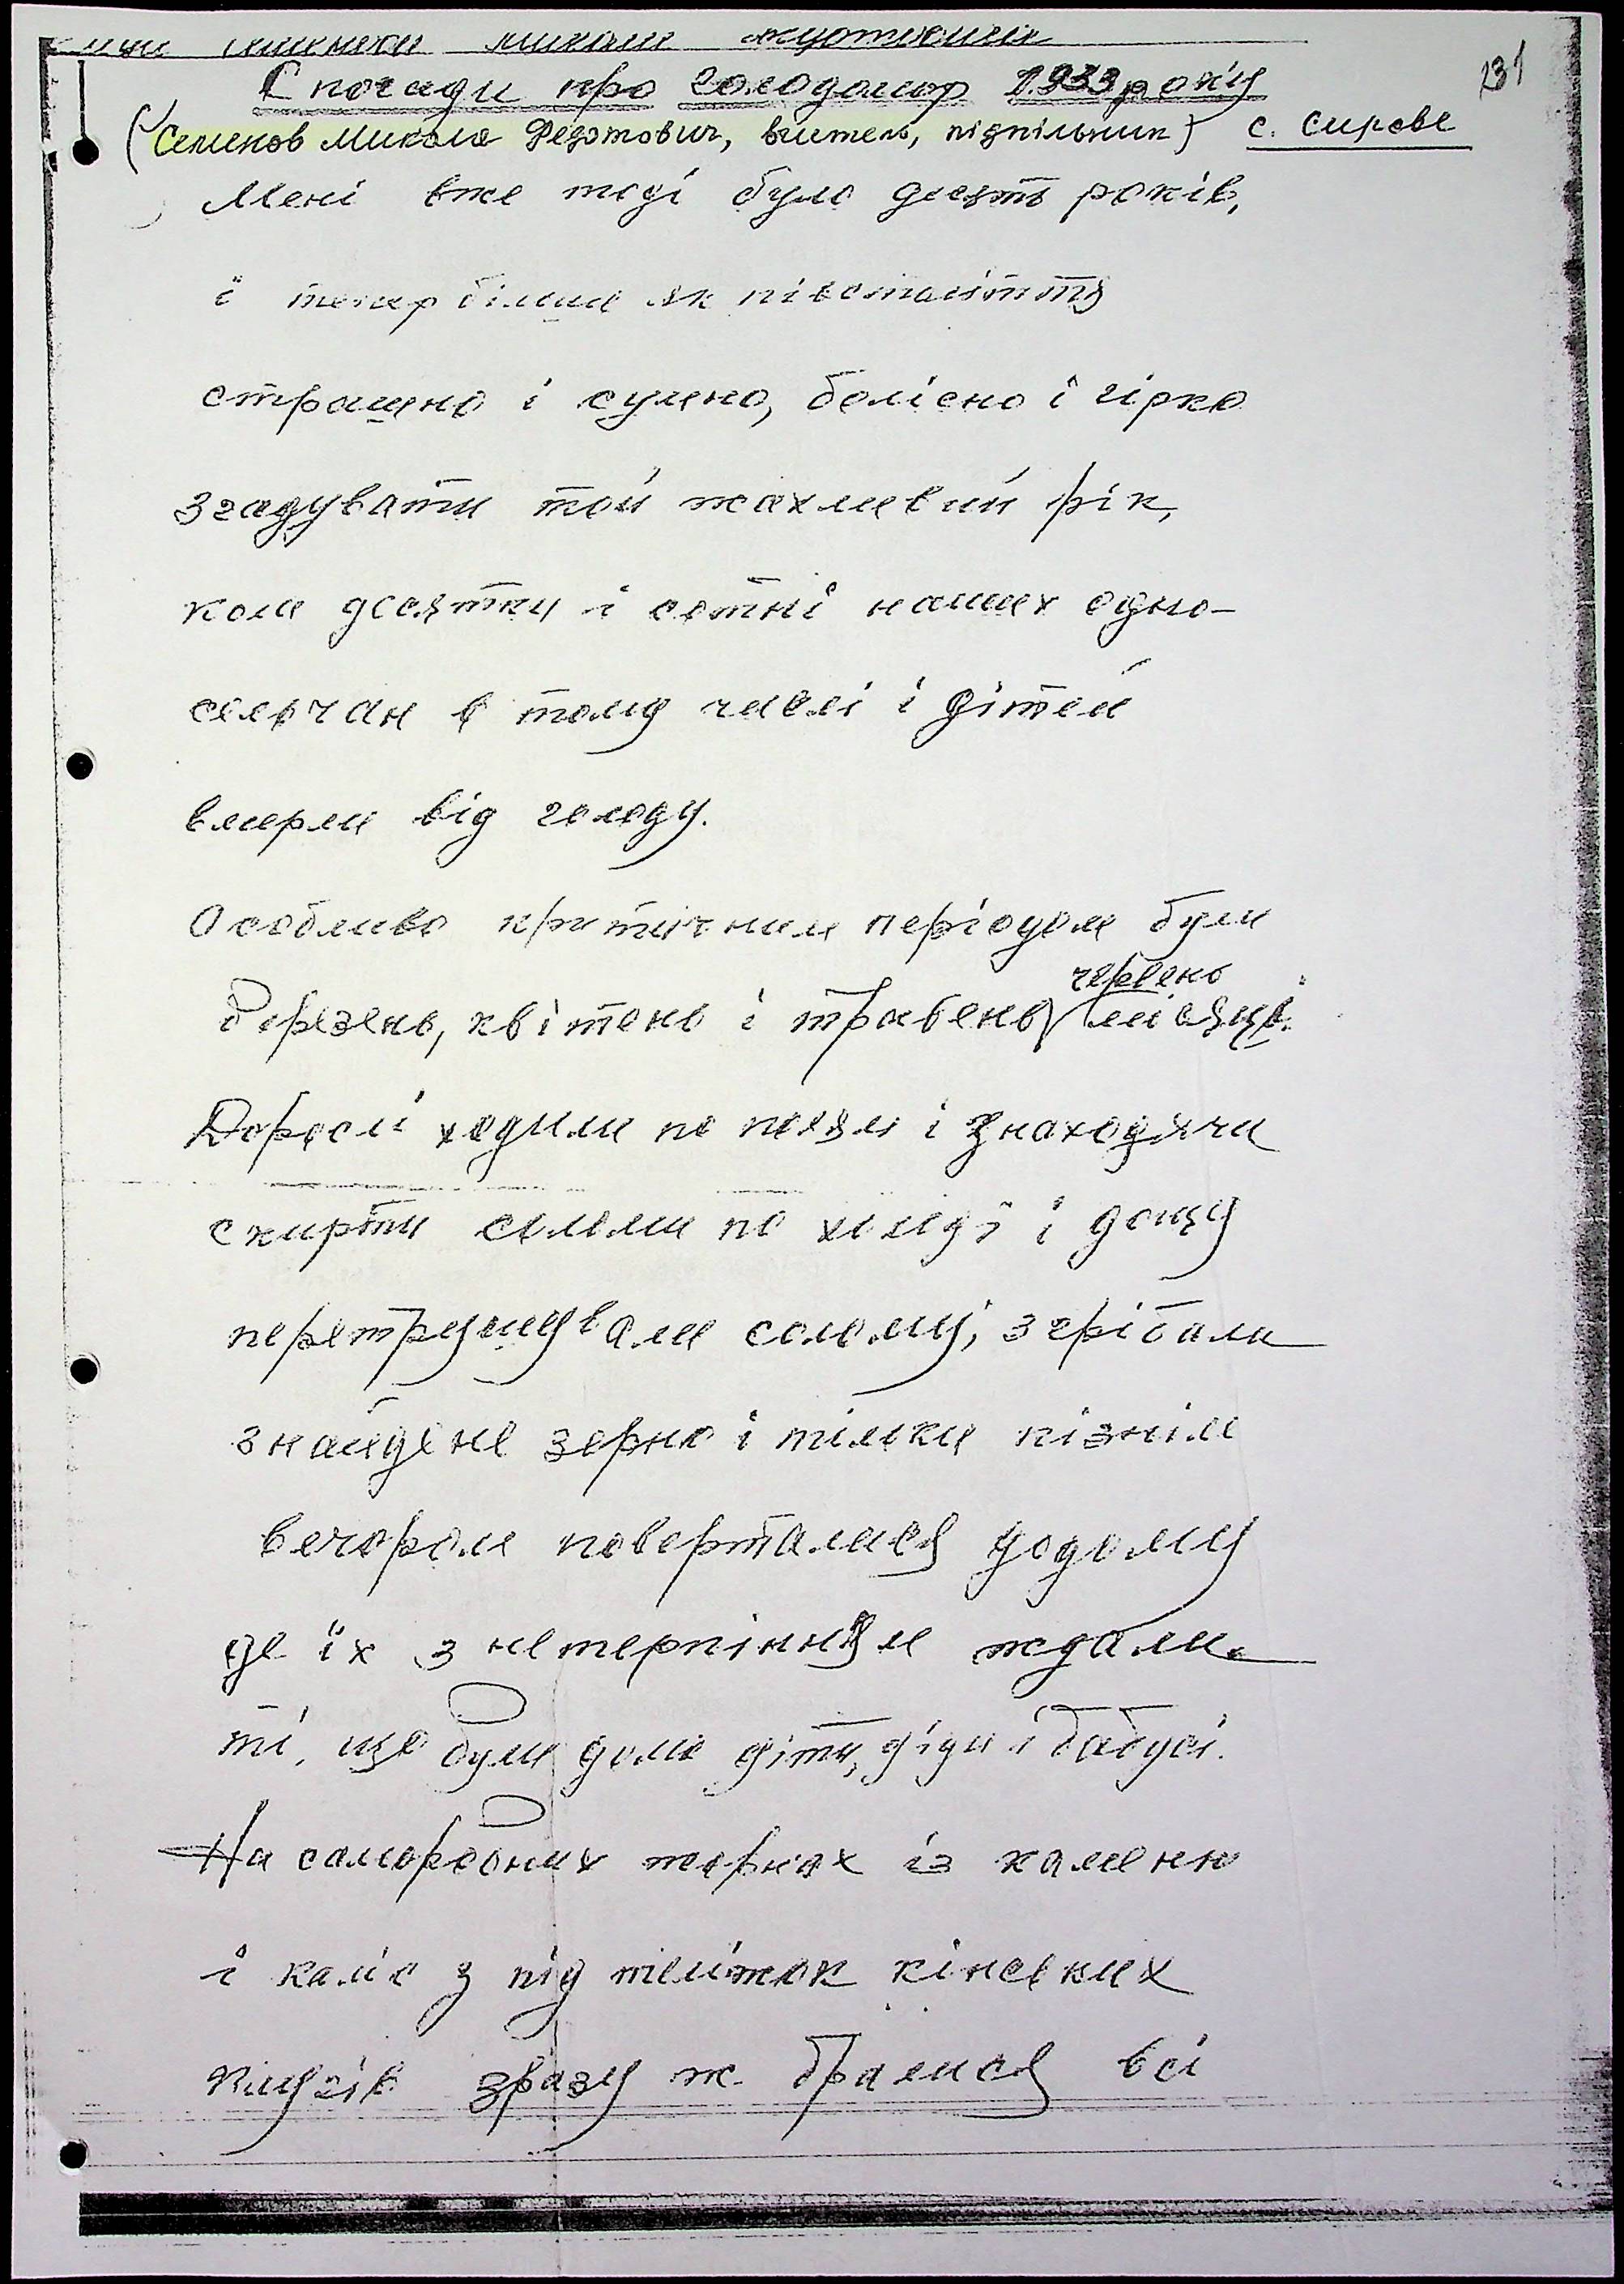 231
Спогади про голодомор 1933 року
(Семенов Микола Федотович, вчитель, підпільник) с. Сирове
Мені вже тоді було десять років,
і тепер більше як півстоліття
страшно і сумно, болісно і гірко
згадувати той жахливий рік,
коли десятки і сотні наших одно-
сельчан в тому числі і дітей
вмерли від голоду.
Особливо критичним періодом були
червень
Березень, квітень і травень місяці.
Дорослі ходили по полях і знаходячи
скирти соломи по холоді і дощу
перетрушували солому, згрібали
знайдене зерно і тільки пізнім
вечором поверталися додому
де їх з нетерпінням ждали
ті, що були дома діти, діди і бабусі.
На саморобних жорнах із каменю
і коліс з під тяліжок кінських
плугів зразу ж брались всі